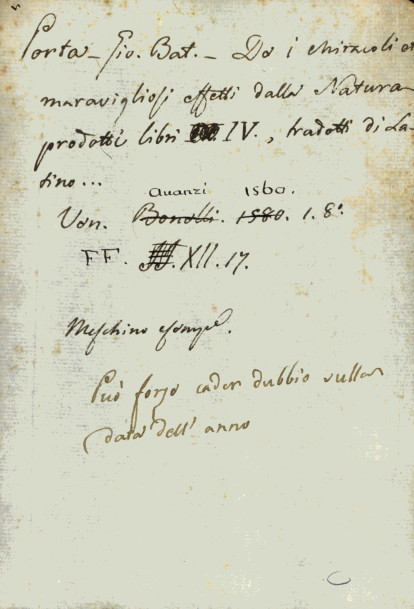 Porta - Gio. Bat. - De i miracoli et
maravigliosi effetti dalla Natura
prodotti libri IV., tradotti di La-
tino...
Avanzi 1560.
Ven. Bonelli. 1580. 1. 8°.
FF. XII. 17.
Meschino esempl.
Può forse cader dubbio sulla
data dell' anno